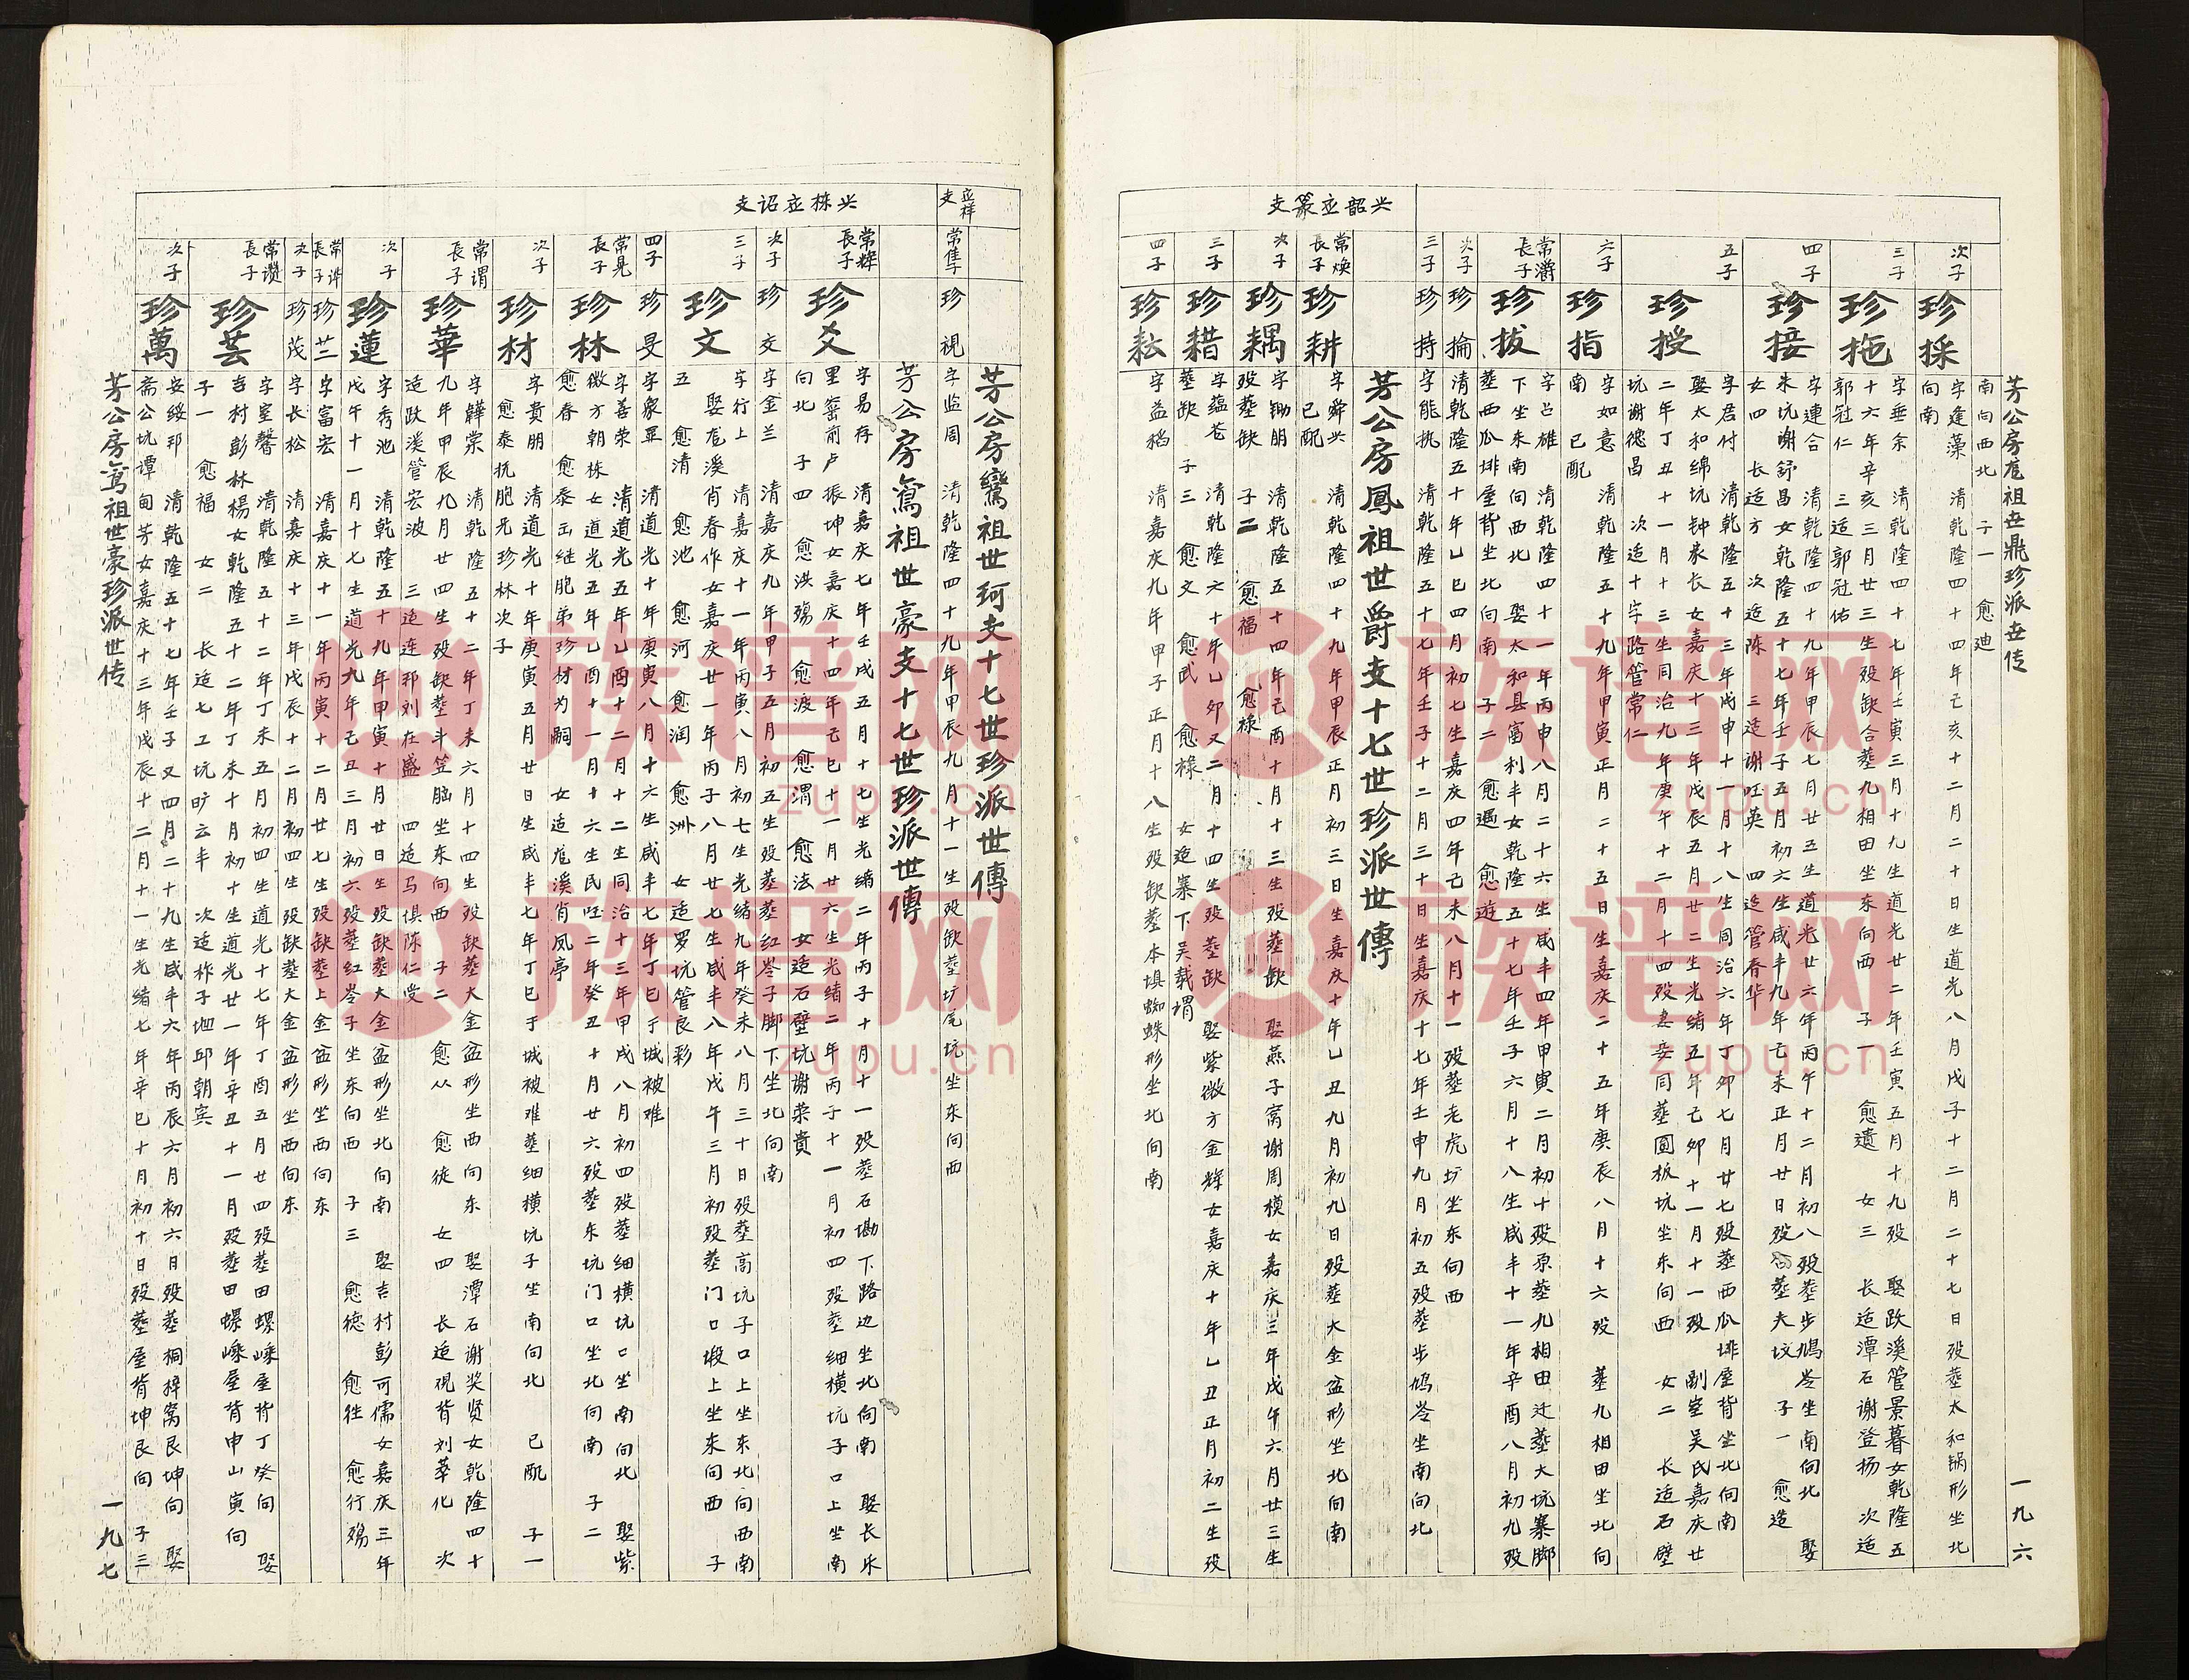 芳公房庬祖世鼎珍派世传
一九六
次子
珍採
字逢藻 清乾隆四十四年己亥十二月二十日生道光八月戊子十二月二十七日殁葬太和锅形坐北
向南
南向西北 子一 愈迪
三子
珍拖
字垂余 清乾隆四十七年壬寅三月十九生道光廿二年壬寅五月十九殁 娶跌溪管景暮女乾隆五
十六年辛亥三月廿三生殁缺合葬九相田坐东向西 子一 愈遗 女三 长适潭石谢登扬 次适
郭冠仁 三适郭冠佑
四子
珍接
字連合 清乾隆四十九年甲辰七月廿五生道光廿六年丙午十二月初八殁葬步鳩岺坐南向北 娶
朱坑谢舒昌女乾隆五十七年壬子五月初六生咸丰九年己未正月廿日殁葬大坟 子一 愈造
女四 长适方 次适陈 三适谢旺英 四适管春华
五子
珍授
字君付 清乾隆五十三年戊申十一月十八生同治六年丁卯七月廿七殁葬西瓜排屋背坐北向南
娶太和绵坑钟袠长女嘉庆十三年戊辰五月廿二生光绪五年己卯十一月十一殁 副室吴氏嘉庆廿
二年丁丑十一月十三生同治九年庚午十二月十四殁妻妾同葬圆板坑坐东向西 女二 长适石壁
坑谢德昌 次适十字路管常仁
六子
珍指
字如意 清乾隆五十九年甲寅正月二十五日生嘉庆二十五年庚辰八月十六殁 葬九相田坐北向
南 已配
常灂長子
珍拔
字占雄 清乾隆四十一年丙申八月二十六生咸丰四年甲寅二月初十殁原葬九相田迁葬大坑寨脚
下坐东南向西北 娶太和县富利丰女乾隆五十七年壬子六月十八生咸丰十一年辛酉八月初九殁
葬西瓜排屋背坐北向南 子二 愈遍 愈遊
次子
珍掄
清乾隆五十年乙巳四月初七生嘉庆四年己未八月十一殁葬老虎坊坐东向西
三子
珍持
字能执 清乾隆五十七年壬子十二月三十日生嘉庆十七年壬申九月初五殁葬步鳩岺坐南向北
兴韶应篆支
芳公房鳳祖世爵支十七世珍派世傳
常焕長子
珍耕
字舜兴 清乾隆四十九年甲辰正月初三日生嘉庆十年乙丑九月初九日殁葬大金盆形坐北向南
已配
次子
珍耦
字锄朋 清乾隆五十四年己酉十月十三生殁葬缺 娶燕子窝谢周模女嘉庆三年戊午六月廿三生
殁葬缺 子二 愈福 愈禄
三子
珍耤
字蕴苍 清乾隆六十年乙卯又二月十四生殁葬缺 娶紫微方金辉女嘉庆十年乙丑正月初二生殁
葬缺 子三 愈文 愈武 愈禄 女适寨下吴载堦
四子
珍耘
字益稻 清嘉庆九年甲子正月十八生殁缺葬本埧蜘蛛形坐北向南
芳公房鸞祖世珂支十七世珍派世傳
应祥支
常隹子
珍視
字监周 清乾隆四十九年甲辰九月十一生殁缺葬坊尾坑坐东向西
芳公房鴌祖世豪支十七世珍派世傳
兴栋应诏支
常辉長子
珍爻
字易存 清嘉庆七年壬戌五月十七生光绪二年丙子十月十一殁葬石磡下路边坐北向南 娶长乐
里窑前卢振坤女嘉庆十四年己巳十一月廿六生光绪二年丙子十一月初四殁葬细横坑子口上坐南
向北 子四 愈洪殇 愈波 愈渭 愈法 女适石壁坑谢荣貴
次子
珍交
字金兰 清嘉庆九年甲子五月初五生殁葬葬红岺子脚下坐北向南
三子
珍文
字行上 清嘉庆十一年丙寅八月初七生光绪九年癸未八月三十日殁葬高坑子口上坐东北向西南
娶庬溪肖春作女嘉庆廿一年丙子八月廿七生咸丰八年戊午三月初殁葬门口塅上坐东向西 子
五 愈清 愈池 愈河 愈润 愈洲 女适罗坑管良彩
四子
珍旻
字象显 清道光十年庚寅八月十六生咸丰七年丁巳于城被难
常晃長子
珍林
字善荣 清道光五年乙酉十二月十二生同治十三年甲戌八月初四殁葬细横坑口坐南向北 娶紫
微方朝栋女道光五年乙酉十一月十六生民国二年癸丑十月廿六殁葬东坑门口坐北向南 子二
愈春 愈泰出继胞弟珍材为嗣 女适庬溪肖凤亭
次子
珍材
字貴朋 清道光十年庚寅五月廿日生咸丰七年丁巳于城被难葬细横坑子坐南向北 已配 子一
愈泰抚胞兄珍林次子
常谓長子
珍華
字韡棠 清乾隆五十二年丁未六月十四生殁缺葬大金盆形坐西向东 娶潭石谢奖贤女乾隆四十
九年甲辰九月廿四生殁缺葬斗笠脑坐东向西 子二 愈从 愈徒 女四 长适砚背刘莘化 次
适跌溪管宏波 三适连邦刘在盛 四适马俱陈仁受
次子
珍蓮
字秀池 清乾隆五十九年甲寅十月廿日生殁缺葬大金盆形坐北向南 娶吉村彭可儒女嘉庆三年
戊午十一月十七生道光九年己丑三月初六殁葬红岺子坐东向西 子三 愈德 愈往 愈行殇
常詳長子
珍芷
字富宏 清嘉庆十一年丙寅十二月廿七生殁缺葬上金盆形坐西向东
次子
珍茂
字长松 清嘉庆十三年戊辰十二月初四生殁缺葬大金盆形坐西向东
常瓒長子
珍芸
字室馨 清乾隆五十二年丁未五月初四生道光十七年丁酉五月廿四殁葬田螺嵊屋背丁癸向 娶
吉村彭林楊女乾隆五十二年丁未十月初十生道光廿一年辛丑十一月殁葬田螺嵊屋背申山寅向
子一 愈福 女二 长适七工坑旷云丰 次适柞子坦邱朝宾
次子
珍萬
字绥邦 清乾隆五十七年壬子又四月二十九生咸丰六年丙辰六月初六日殁葬桐梓窝艮坤向 娶
斋公坑谭甸芳女嘉庆十三年戊辰十二月十一生光绪七年辛巳十月初十日殁葬屋背坤艮向 子三
芳公房鴌祖世豪珍派世传
一九七
族谱网
zupu.cn
族谱网
zupu.cn
族谱网
zupu.cn
族谱网
zupu.cn